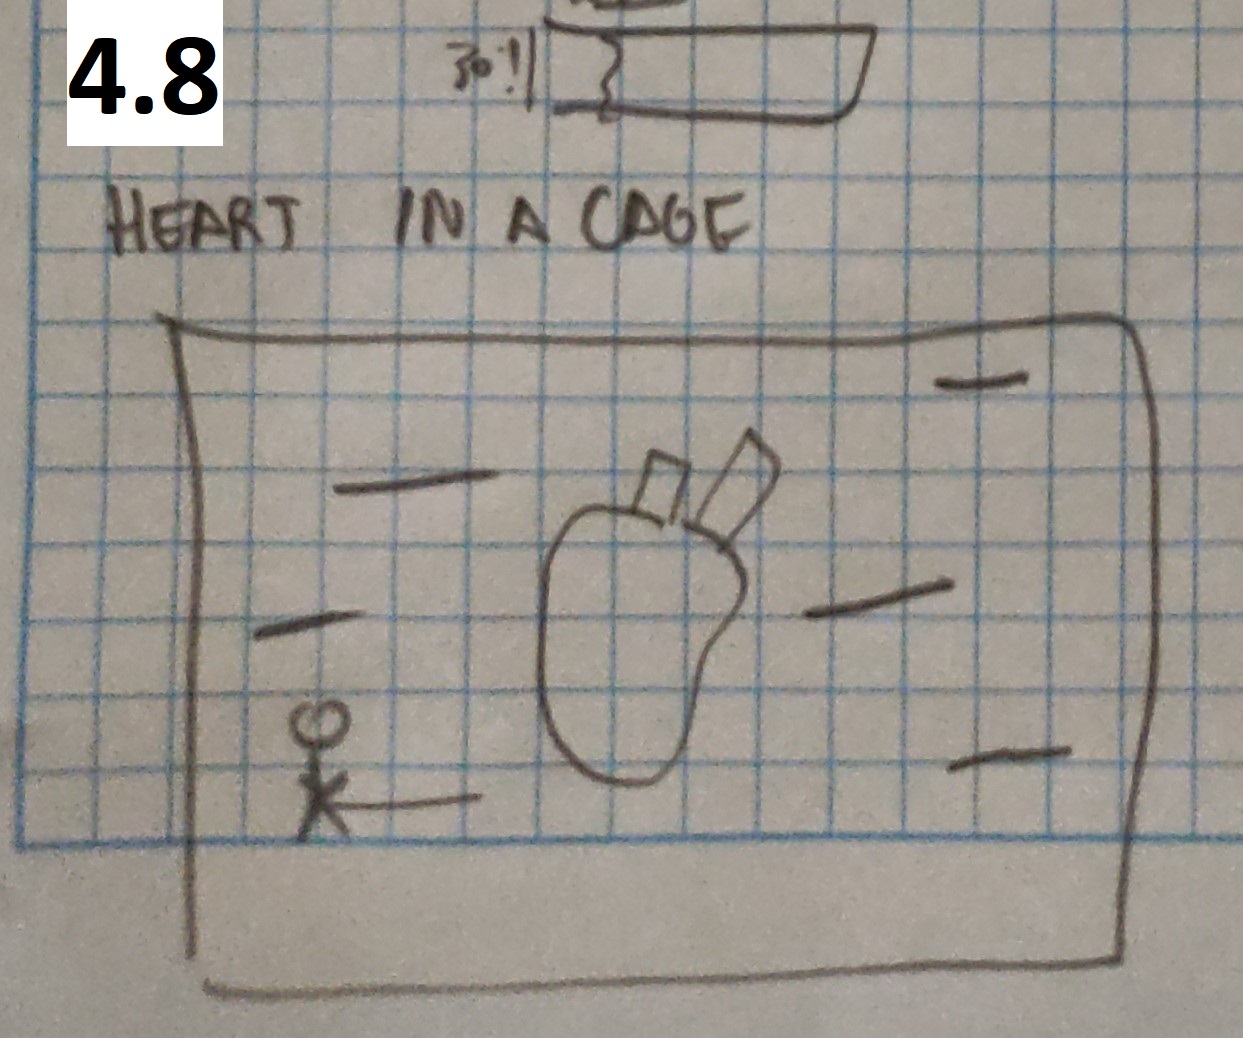 4.8
HEART IN A CAGE